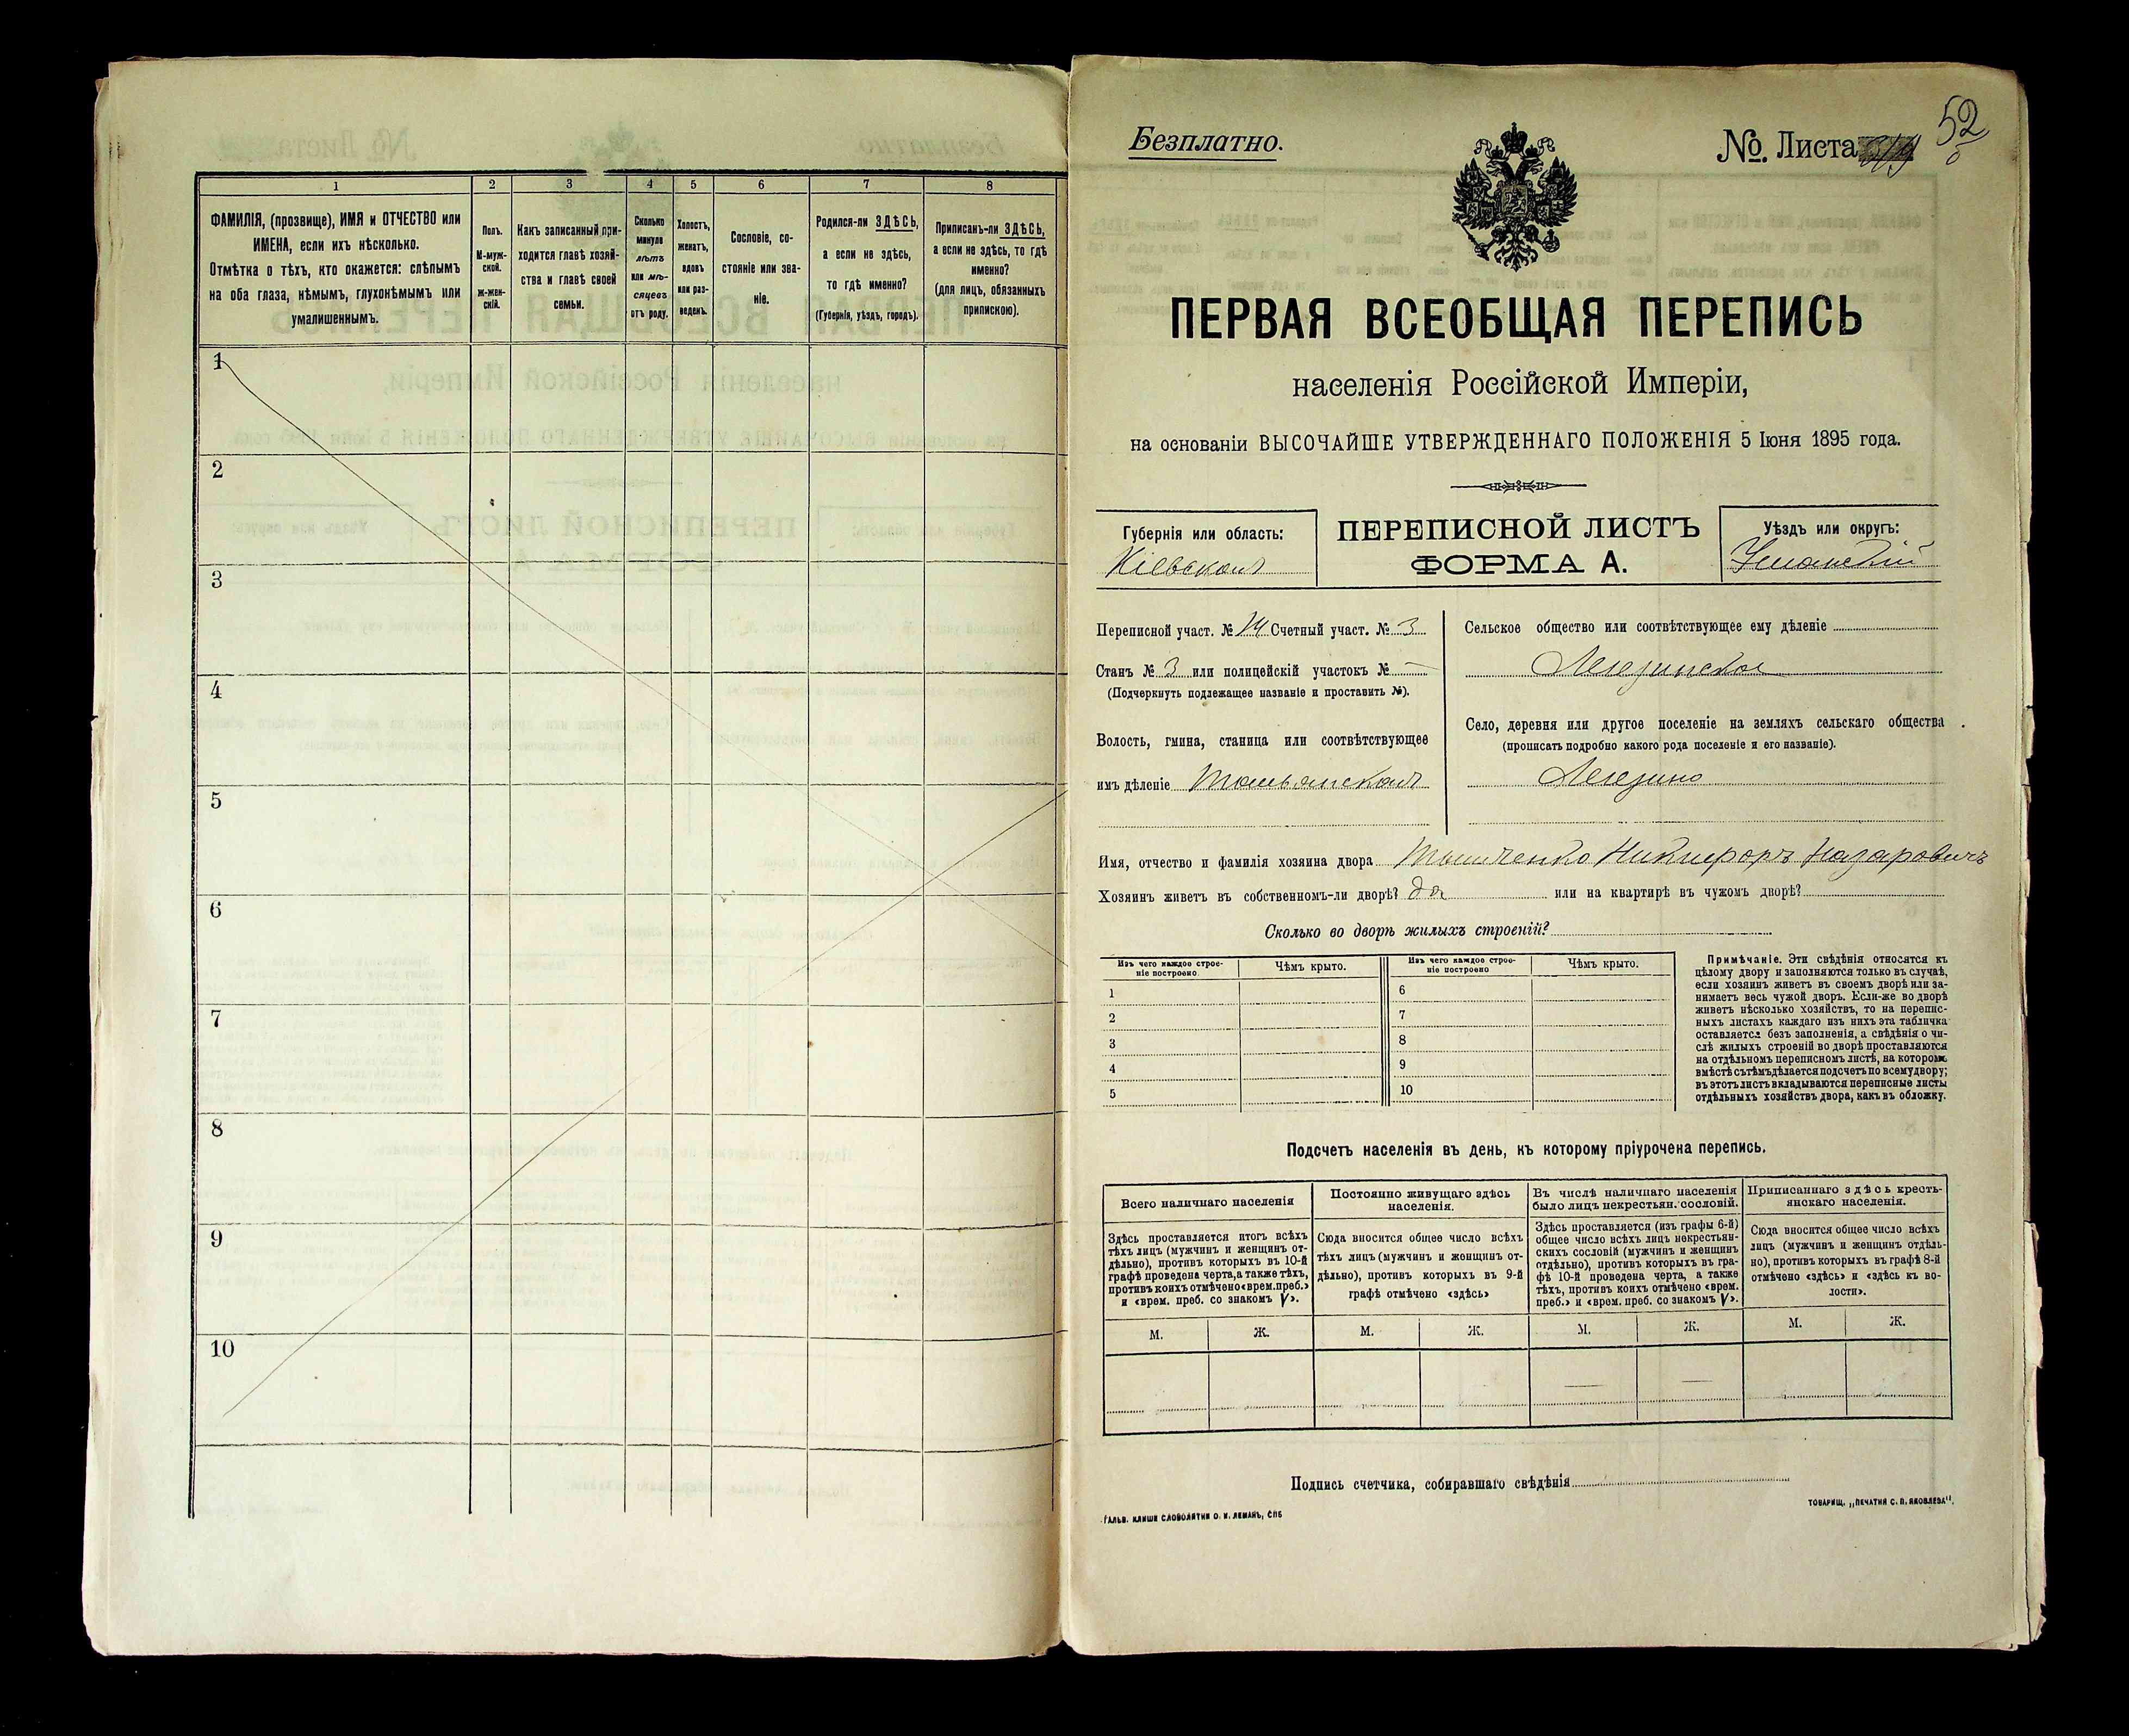 1 2 3 4 5 6 7 8
ФАМИЛІЯ, (прозвище), ИМЯ и ОТЧЕСТВО или
ИМЕНА, если ихъ нѣсколько.
Отмѣтка о тѣхъ, кто окажется: слѣпымъ
на оба глаза, нѣмымъ, глухонѣмымъ или
умалишеннымъ.
Полъ.
М-муж-
ской.
Ж-жен-
скій.
Какъ записанный при-
ходится главѣ хозяй-
ства и главѣ своей
семьи.
Сколько
минуло
лѣтъ
или мѣ-
сяцевъ
отъ роду.
Холостъ,
женатъ,
вдовъ
или раз-
веденъ.
Сословіе, со-
стояніе или зва-
ніе.
Родился-ли ЗДѢСЬ,
а если не здѣсь,
то гдѣ именно?
(Губернія, уѣздъ, городъ).
Приписанъ-ли ЗДѢСЬ,
а если не здѣсь, то гдѣ
именно?
(для лицъ, обязанныхъ
припискою).
1
2
3
4
5
6
7
8
9
10
Безплатно.
№. Листа
52
ПЕРВАЯ ВСЕОБЩАЯ ПЕРЕПИСЬ
населенія Россійской Имперіи,
на основаніи ВЫСОЧАЙШЕ УТВЕРЖДЕННАГО ПОЛОЖЕНІЯ 5 Іюня 1895 года.
Губернія или область:
Кіевская
ПЕРЕПИСНОЙ ЛИСТЪ
ФОРМА А.
Уѣздъ или округъ:
Уманскій
Переписной участ. № 14 Счетный участ. № 3
Станъ № 3 или полицейскій участокъ № —
(Подчеркнуть подлежащее названіе и проставить №).
Волость, гмина, станица или соотвѣтствующее
имъ дѣленіе Тальянская
Сельское общество или соотвѣтствующее ему дѣленіе
Легезинское
Село, деревня или другое поселеніе на земляхъ сельскаго общества
(прописать подробно какого рода поселеніе и его названіе).
Легезино
Имя, отчество и фамилія хозяина двора Тимченко Никифоръ Назаровичъ
Хозяинъ живетъ въ собственномъ-ли дворѣ? да или на квартирѣ въ чужомъ дворѣ?
Сколько во дворѣ жилыхъ строеній?
Изъ чего каждое строе-
ніе построено
Чѣмъ крыто.
Изъ чего каждое строе-
ніе построено
Чѣмъ крыто.
1 6
2 7
3 8
4 9
5 10
Примѣчаніе. Эти свѣдѣнія относятся къ
цѣлому двору и заполняются только въ случаѣ,
если хозяинъ живетъ въ своемъ дворѣ или за-
нимаетъ весь чужой дворъ. Если-же во дворѣ
живетъ нѣсколько хозяйствъ, то на перепис-
ныхъ листахъ каждаго изъ нихъ эта табличка
оставляется безъ заполненія, а свѣдѣнія о чи-
слѣ жилыхъ строеній во дворѣ проставляются
на отдѣльномъ переписномъ листѣ, на которомъ
вмѣстѣ съ тѣмъ дѣлается подсчетъ по всему двору;
въ этотъ листъ вкладываются переписные листы
отдѣльныхъ хозяйствъ двора, какъ въ обложку.
Подсчетъ населенія въ день, къ которому пріурочена перепись.
Всего наличнаго населенія
Здѣсь проставляется итогъ всѣхъ
тѣхъ лицъ (мужчинъ и женщинъ от-
дѣльно), противъ которыхъ въ 10-й
графѣ проведена черта, а также тѣхъ,
противъ коихъ отмѣчено «врем. преб.»
и «врем. преб. со знакомъ V».
Постоянно живущаго здѣсь
населенія.
Сюда вносится общее число всѣхъ
тѣхъ лицъ (мужчинъ и женщинъ от-
дѣльно), противъ которыхъ въ 9-й
графѣ отмѣчено «здѣсь»
Въ числѣ наличнаго населенія
было лицъ некрестьян. сословій.
Здѣсь проставляется (изъ графы 6-й)
общее число всѣхъ лицъ некрестьян-
скихъ сословій (мужчинъ и женщинъ
отдѣльно), противъ которыхъ въ гра-
фѣ 10-й проведена черта, а также
тѣхъ, противъ коихъ отмѣчено «врем.
преб.» и «врем. преб. со знакомъ V».
Приписаннаго здѣсь кресть-
янскаго населенія.
Сюда вносится общее число всѣхъ
лицъ (мужчинъ и женщинъ отдѣль-
но), противъ которыхъ въ графѣ 8-й
отмѣчено «здѣсь» и «здѣсь къ во-
лости».
М. Ж. М. Ж. М. Ж. М. Ж.
— —
Подпись счетчика, собиравшаго свѣдѣнія
ГАЛЬВ. КЛИШИ СЛОВОЛИТНИ О. И. ЛЕМАНЪ, СПБ
ТОВАРИЩ. „ПЕЧАТНЯ С. П. ЯКОВЛЕВА“.